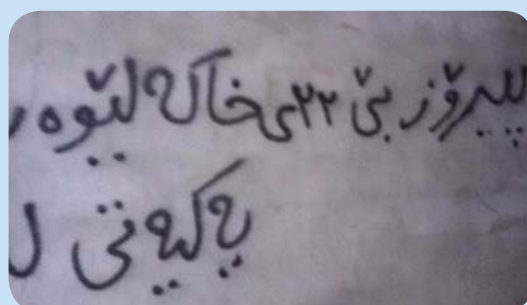 پیرۆز بێ ٢٢ی خاکە لێوە
یەکیەتی